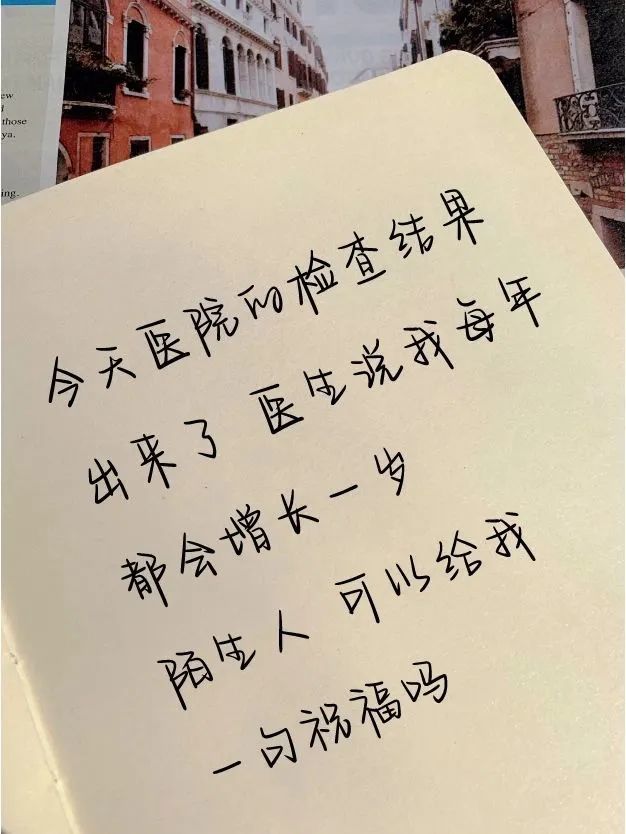 ew
those
ya.
ing.
今天医院的检查结果
出来了 医生说我每年
都会增长一岁
陌生人 可以给我
一句祝福吗